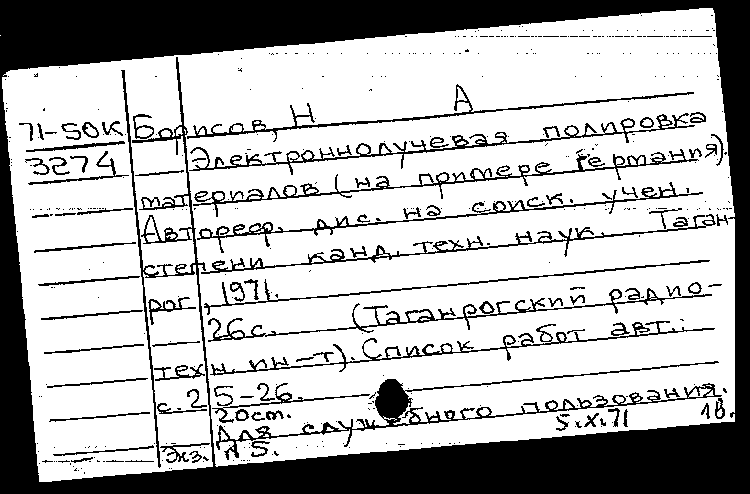 71-50К Борисов, Н А
3274 Электроннолучевая полировка
материалов (на примере германия).
Автореф. дис. на соиск. учен.
степени канд. техн. наук. Таган-
рог, 1971.
26 с. (Таганрогский радио-
техн. ин-т). Список работ авт.:
с. 25-26.
20 ст.
Для служебного пользования.
Экз. № 5. 5.X.71 1в.